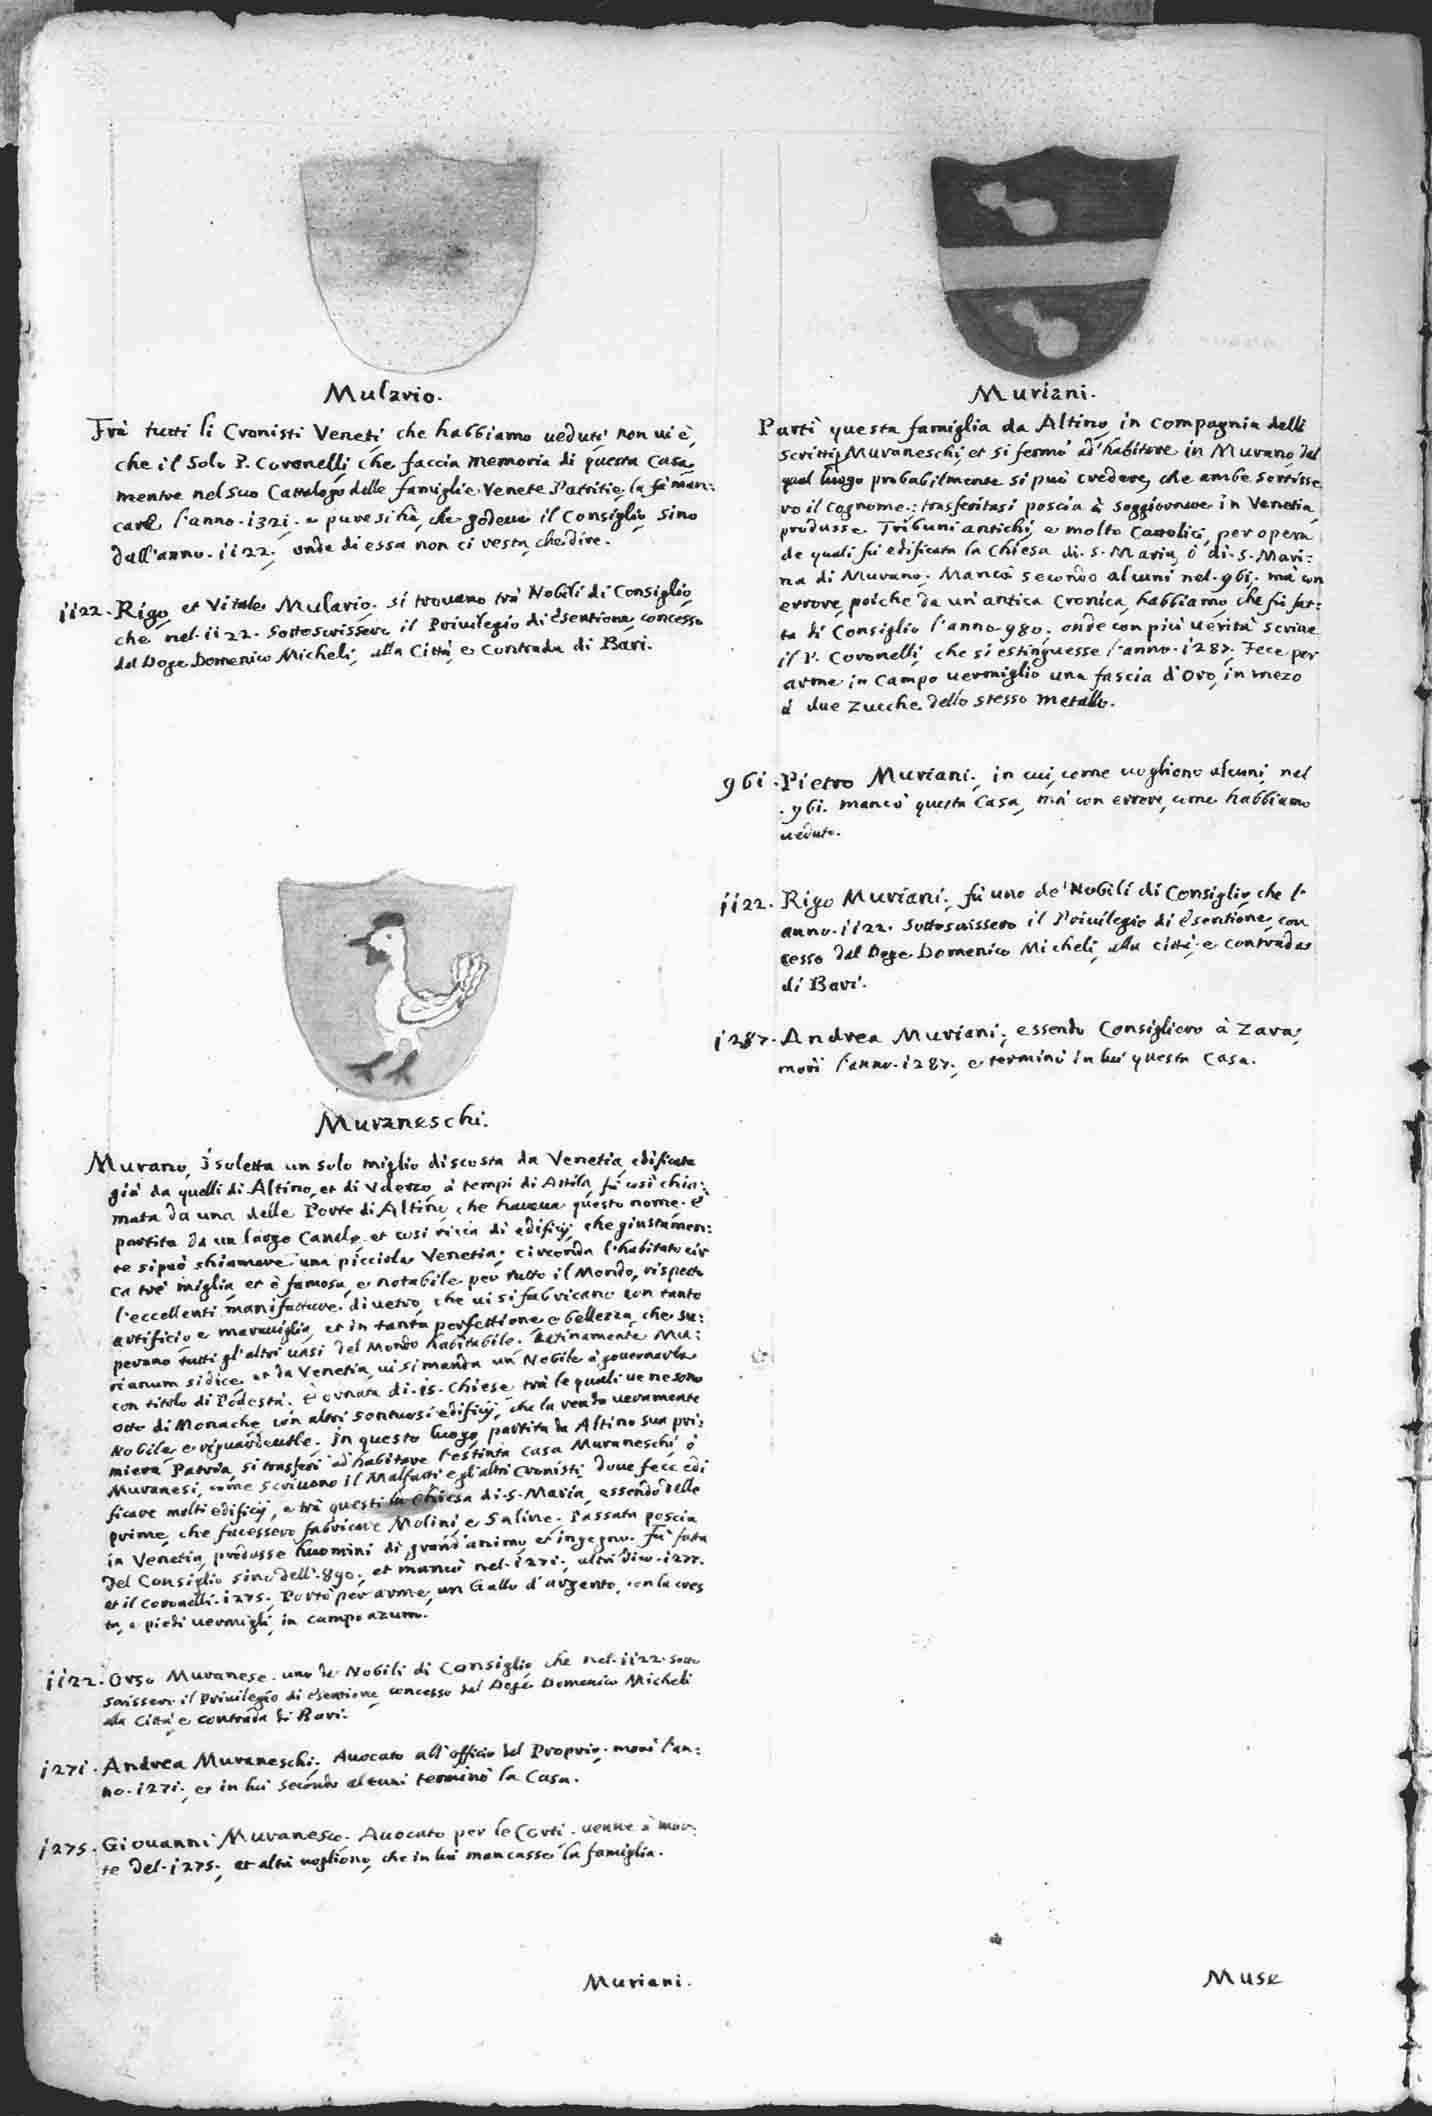 Mulario.
Frà tutti li Cronisti Veneti che habbiamo ueduti non ui è,
che il solo P. Coronelli, che faccia memoria di questa Casa,
mentre nel suo Cattalogo delle famiglie Venete Patritie la fà man:
care l'anno .1321. e pure si hà, che godeua il Consiglio sino
dall'anno .1122. onde di essa non ci resta, che dire.
1122. Rigo et Vitale Mulario. si trouano trà Nobili di Consiglio
che nel .1122. Sottoscrissero il Priuilegio di esentione concesso
dal Doge Domenico Micheli, alla Città e Contrada di Bari.
Muraneschi.
Murano, Isoletta un solo miglio discosta da Venetia, edificata
già da quelli di Altino, et di Vderzo à tempi di Attila, fù così chia:
mata da una delle Porte di Altino che haueua questo nome. è
partita da un largo Canale et così ricca di edificij, che giustamen:
te si può chiamare una picciola Venetia; circonda l'habitato cir
ca trè miglia, et è famosa, e notabile per tutto il Mondo, rispetto
l'eccellenti manifatture di uetro, che ui si fabricano con tanto
artificio e marauiglia, et in tanta perfettione e bellezza, che su:
perano tutti gl'altri uasi del Mondo habitabile. Latinamente Mu:
rianum si dice, et da Venetia, ui si manda un Nobile à gouernarla
con titolo di Podestà. È ornata di .15. Chiese trà le quali ue ne sono
otto di Monache con altri sontuosi edificij, che la rendo ueramente
Nobile e riguardeuole. In questo luogo partita da Altino sua pri:
miera Patria, si trasferì ad habitare l'estinta casa Muraneschi ò
Muranesi, come scriuono il Malfatti e gl'altri Cronisti, doue fece edi
ficare molti edificij, e trà questi la Chiesa di .S. Maria, essendo delle
prime, che facessero fabricare Molini e Saline. Passata poscia
in Venetia, produsse huomini di grand'animo et ingegno. Fù fatta
del Consiglio sino dell'.890. et mancò nel .1271. altri dico .1277.
et il Coronelli .1275. Portò per arme, un Gallo d'argento, con la cres
ta, e piedi uermigli, in campo azuro.
1122. Orso Muranese. uno de Nobili di Consiglio che nel .1122. sotto
scrissero il Priuilegio di esentione concesso dal Doge Domenico Micheli
alla Città e contrada di Bari.
1271. Andrea Muraneschi. Auocato all'officio del Proprio. morì l'an:
no .1271. et in lui secondo alcuni terminò la Casa.
1275. Giouanni Muranesco. Auocato per le Corti. uenne à mor:
te del .1275. et altri uogliono, che in lui mancasse la famiglia.
Muriani.
Muriani.
Partì questa famiglia da Altino in compagnia delli
scritti Muraneschi, et si fermò ad habitare in Murano dal
qual luogo probabilmente si può credere, che ambe sortisse
ro il Cognome.; trasferitasi poscia à soggiornare in Venetia
produsse Tribuni antichi, e molto Cattolici, per opera
de quali fù edificata la Chiesa di .S. Maria, ò di .S. Mari:
na di Murano. Mancò secondo alcuni nel .961. mà con
errore, poiche da un'antica Cronica, habbiamo che fù fat:
ta di Consiglio l'anno .980. onde con più uerità scriue
il P. Coronelli, che si estinguesse l'anno .1287. Fece per
arme in Campo uermiglio una fascia d'Oro, in mezo
à due Zucche dello stesso metallo.
961. Pietro Muriani. in cui, come uogliono alcuni, nel
.961. mancò questa Casa, mà con errore, come habbiamo
ueduto.
1122. Rigo Muriani. fù uno de' Nobili di Consiglio che l'
anno .1122. Sottoscrissero il Priuilegio di esentione, con
cesso dal Doge Domenico Micheli, alla città e contrada
di Bari.
1287. Andrea Muriani, essendo Consigliero à Zara,
morì l'anno .1287. e terminò in lui questa Casa.
Muse